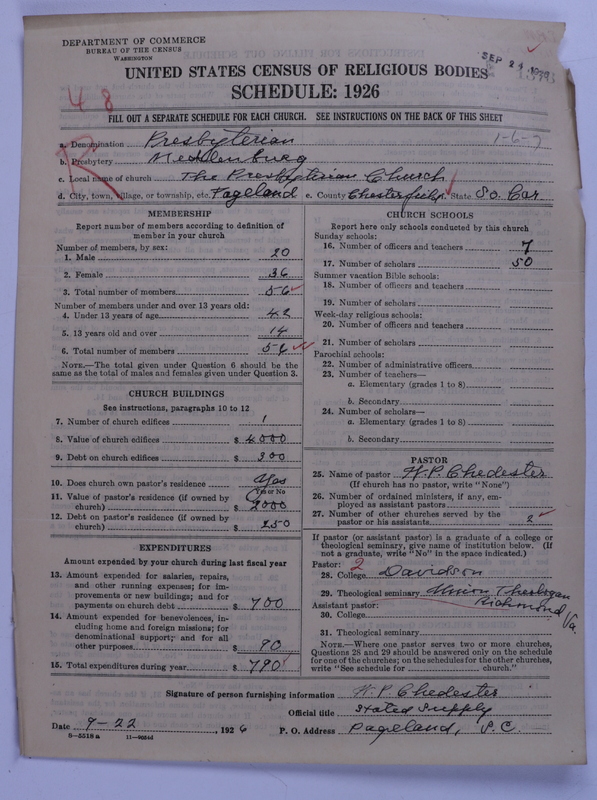 DEPARTMENT OF COMMERCE
BUREAU OF THE CENSUS
WASHINGTON
SEP 24
UNITED STATES CENSUS OF RELIGIOUS BODIES
SCHEDULE: 1926
48
FILL OUT A SEPARATE SCHEDULE FOR EACH CHURCH. SEE INSTRUCTIONS ON THE BACK OF THIS SHEET
1-6-7
a. Denomination Presbyterian
b. Presbytery Mecklenburg
c. Local name of church The Presbyterian Church
d. City, town, village, or township, etc. Pageland e. County Chesterfield State So. Car
R
MEMBERSHIP
Report number of members according to definition of
member in your church
Number of members, by sex:
1. Male 20
2. Female 36
3. Total number of members 56
Number of members under and over 13 years old:
4. Under 13 years of age 42
5. 13 years old and over 14
6. Total number of members 56
NOTE.—The total given under Question 6 should be
same as the total of males and females given under Question 3.
CHURCH BUILDINGS
See instructions, paragraphs 10 to 12
7. Number of church edifices 1
8. Value of church edifices $ 4000
9. Debt on church edifices $ 300
10. Does church own pastor's residence Yes
Yes or No
11. Value of pastor's residence (if owned by
church) $ 2000
12. Debt on pastor's residence (if owned by
church) $ 250
EXPENDITURES
Amount expended by church during last fiscal year
13. Amount expended for salaries, repairs,
and other running expenses; for im-
provements or new buildings; and for
payments on church debt $ 700
14. Amount expended for benevolences, in-
cluding home and foreign missions; for
denominational support; and for all
other purposes $ 90
15. Total expenditures during year $ 790
CHURCH SCHOOLS
Report here only schools conducted by this church
Sunday schools:
16. Number of officers and teachers 7
17. Number of scholars 50
Summer vacation Bible schools:
18. Number of officers and teachers
19. Number of scholars
Week-day religious schools:
20. Number of officers and teachers
21. Number of scholars
Parochial schools:
22. Number of administrative officers
23. Number of teachers—
a. Elementary (grades 1 to 8)
b. Secondary
24. Number of scholars—
a. Elementary (grades 1 to 8)
b. Secondary
PASTOR
25. Name of pastor H.P. Chedester
(If church has no pastor, write "None")
26. Number of ordained ministers, if any, em-
ployed as assistant pastors
27. Number of other churches served by the
pastor or his assistants 2
If pastor (or assistant pastor) is a graduate of a college or
theological seminary, give name of institution below. (If
not a graduate, write "No" in the space indicated.)
Pastor: 2
28. College Davidson
29. Theological seminary Union Theologan
Richmond Va.
Assistant pastor:
30. College
31. Theological seminary
NOTE.—Where one pastor serves two or more churches,
Questions 28 and 29 should be answered only on the schedule
for one of the churches; on the schedules for the other churches,
write "See schedule for church."
Signature of person furnishing information H. P. Chedester
Official title Stated Supply
Date 9-22, 1926 P. O. Address Pageland, S.C.
8-5518a 11-9054d